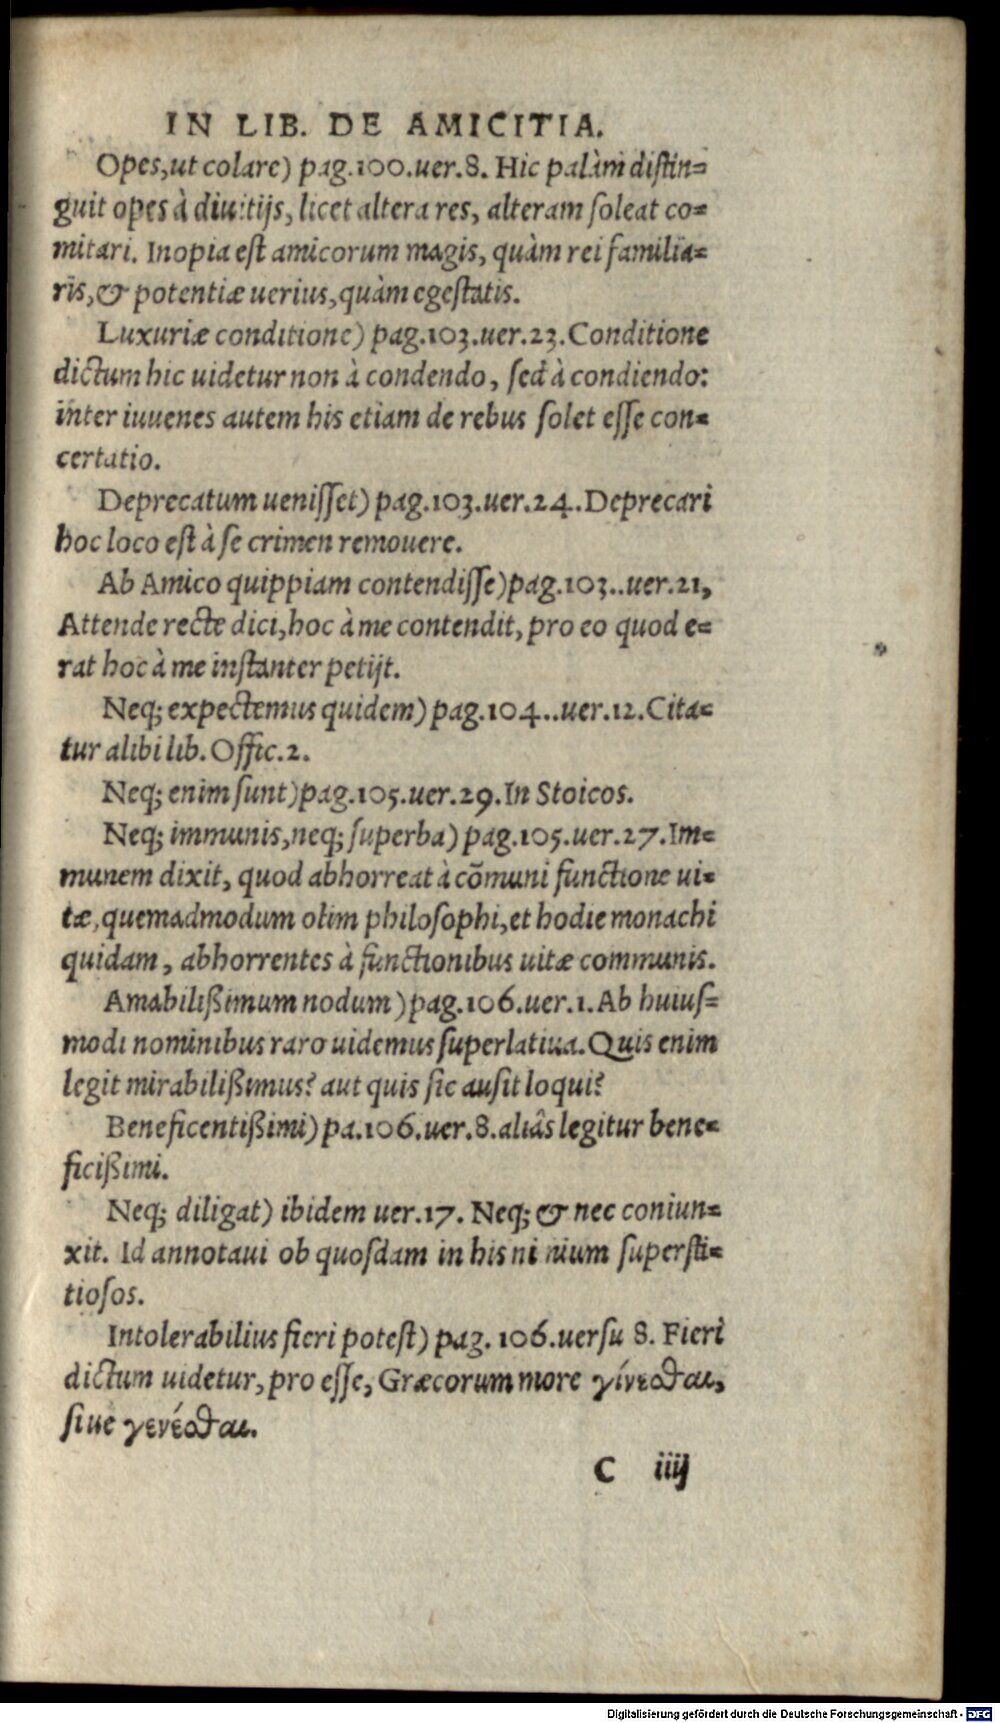 IN LIB. DE AMICITIA.
Opes, ut colare) pag.100.uer.8. Hic palàm distin-
guit opes à diuitijs, licet altera res, alteram soleat co-
mitari. Inopia est amicorum magis, quàm rei familia-
ris, & potentiæ uerius, quàm egestatis.
Luxuriæ conditione) pag.103.uer.23. Conditione
dictum hic uidetur non à condendo, sed à condiendo:
inter iuuenes autem his etiam de rebus solet esse con-
certatio.
Deprecatum uenisset) pag.103.uer.24. Deprecari
hoc loco est à se crimen remouere.
Ab Amico quippiam contendisse) pag.103..uer.21,
Attende recte dici, hoc à me contendit, pro eo quod e-
rat hoc à me instanter petijt.
Neq; expectemus quidem) pag.104..uer.12. Cita-
tur alibi lib. Offic.2.
Neq; enim sunt) pag.105.uer.29. In Stoicos.
Neq; immunis, neq; superba) pag.105.uer.27. Im-
munem dixit, quod abhorreat à cõmuni functione ui-
tæ, quemadmodum olim philosophi, et hodie monachi
quidam, abhorrentes à functionibus uitæ communis.
Amabilißimum nodum) pag.106.uer.1. Ab huius-
modi nominibus raro uidemus superlatiua. Quis enim
legit mirabilißimus? aut quis sic ausit loqui?
Beneficentißimi) pa.106.uer.8. aliâs legitur bene-
ficißimi.
Neq; diligat) ibidem uer.17. Neq; & nec coniun-
xit. Id annotaui ob quosdam in his ni nium supersti-
tiosos.
Intolerabilius fieri potest) pag. 106.uersu 8. Fieri
dictum uidetur, pro esse, Græcorum more γίνεσθαι,
siue γενέσθαι.
C iiij
Digitalisierung gefördert durch die Deutsche Forschungsgemeinschaft - DFG